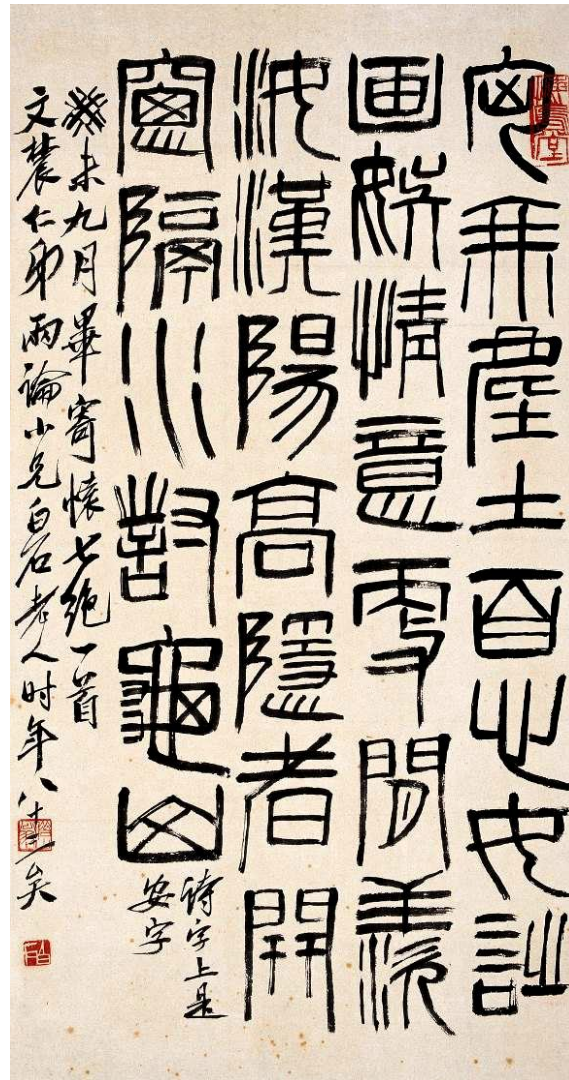 無塵土百心安詩
画娱情意更閒羨
汝漢陽高隱者開
窗隔水對龜山
詩字上是
安字
癸未九月畢寄懷七絶一首
文農仁弟兩論小兄白石老人时年八十三矣